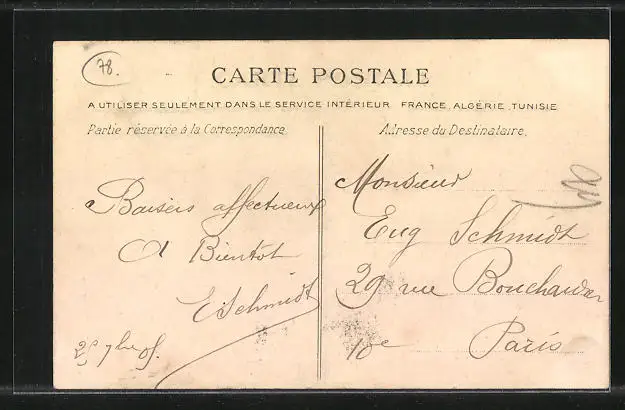 78.
CARTE POSTALE
A UTILISER SEULEMENT DANS LE SERVICE INTÉRIEUR FRANCE, ALGÉRIE, TUNISIE
Partie réservée à la Correspondance
Adresse du Destinataire.
Baisers affectueux
A Bientot
E Schmidt
7bre 05.
Monsieur
Eug Schmidt
29 rue Bouchardon
Paris
10e